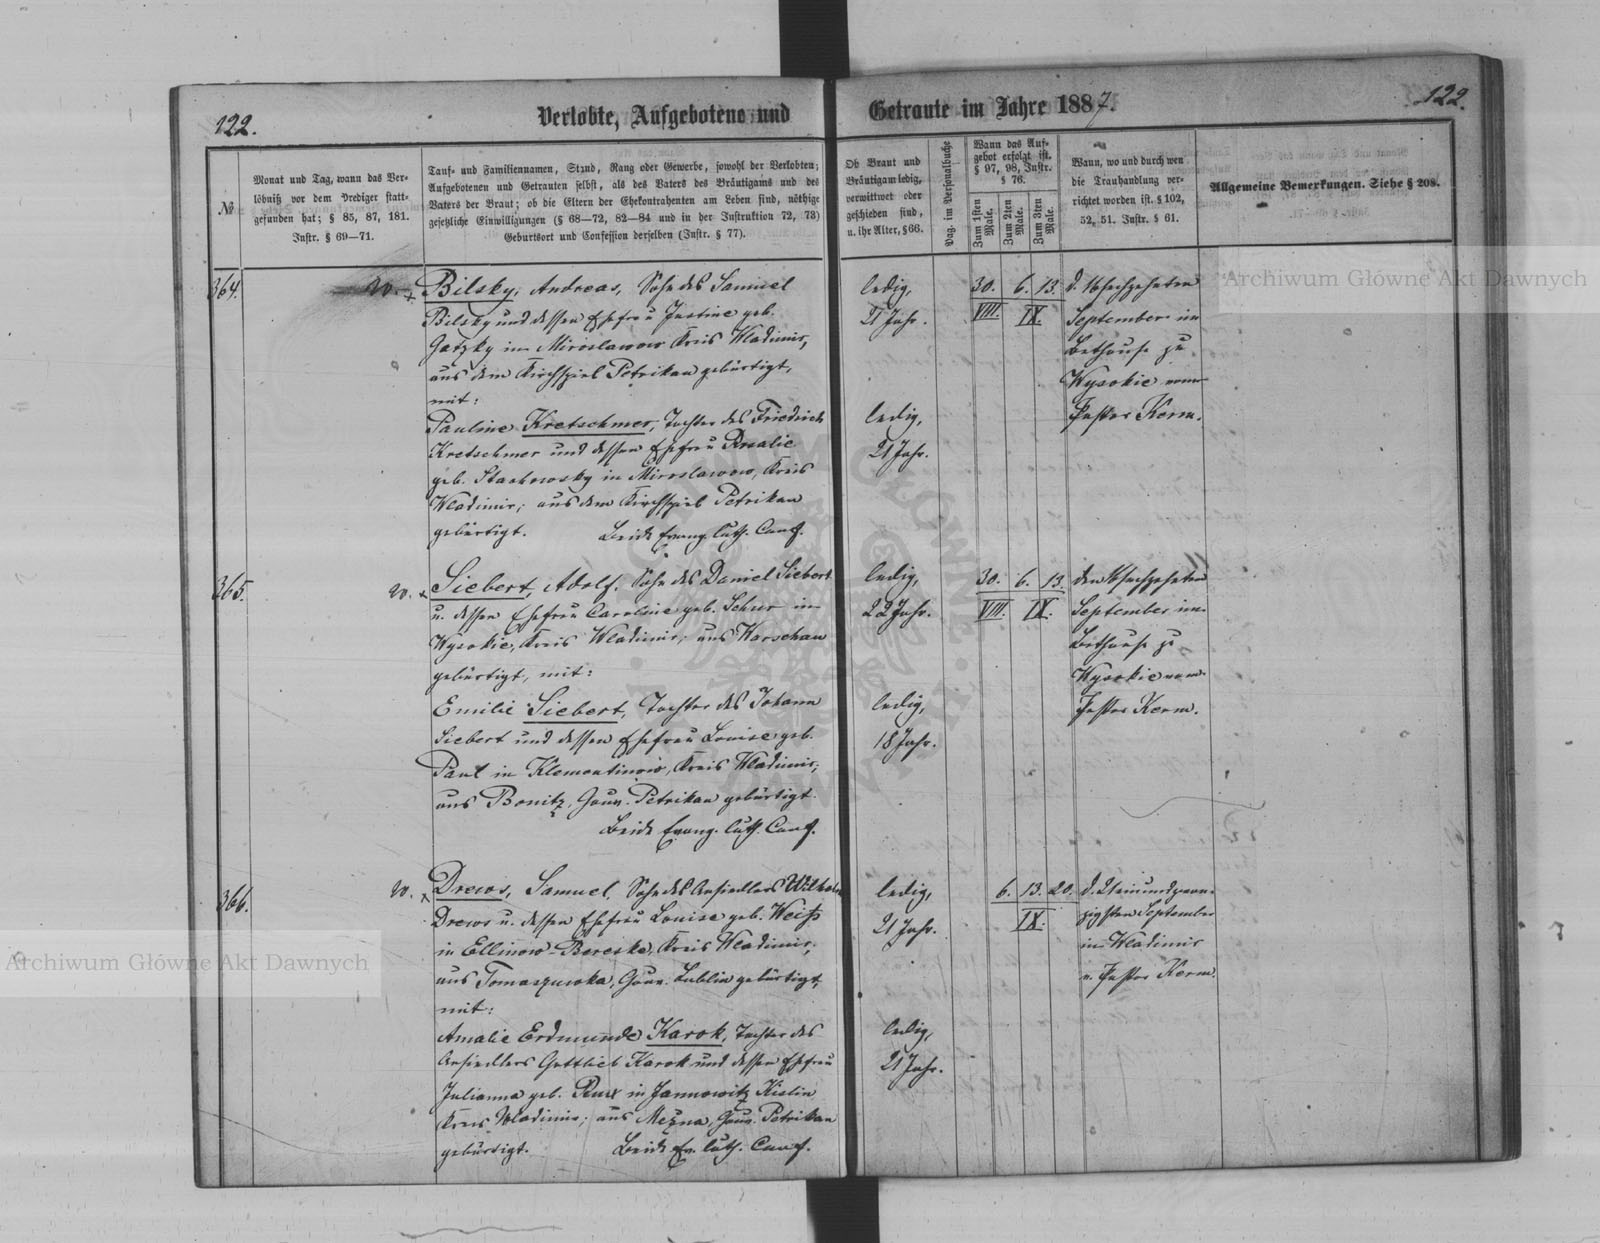 122.
Verlobte, Aufgebotene und
Getraute im Jahre 1887.
122.
№
Monat und Tag, wann das Ver-
löbniß vor dem Prediger statt-
gefunden hat; § 85, 87, 181.
Instr. § 69—71.
Tauf- und Familiennamen, Stand, Rang oder Gewerbe, sowohl der Verlobten;
Aufgebotenen und Getrauten selbst, als des Vaters des Bräutigams und des
Vaters der Braut; ob die Eltern der Ehekontrahenten am Leben sind, nöthige
gesetzliche Einwilligungen (§ 68—72, 82—84 und in der Instruktion 72, 73)
Geburtsort und Confession derselben (Instr. § 77).
Ob Braut und
Bräutigam ledig,
verwittwet oder
geschieden sind,
u. ihr Alter, § 66.
Pag. im Personalbuche
Wann das Auf-
gebot erfolgt ist.
§ 97, 98, Instr.
§ 76.
Zum 1sten
Male.
Zum 2ten
Male.
Zum 3ten
Male.
Wann, wo und durch wen
die Trauhandlung ver-
richtet worden ist. § 102,
52, 51. Instr. § 61.
Allgemeine Bemerkungen. Siehe § 208.
364.
W. + Bilsky, Andreas, Sohn des Samuel
Bilsky und dessen Ehefrau Justine geb.
Gatzky in Miroslawow Kreis Wladimir,
aus dem Kirchspiel Petrikau gebürtigt,
mit:
Pauline Kretschmer, Tochter des Friedrich
Kretschmer und dessen Ehefrau Rosalie
geb. Stachowsky in Miroslawow, Kreis
Wladimir; aus dem Kirchspiel Petrikau
gebürtigt. Beide Evang. Luth. Conf.
ledig,
21 Jahr.
ledig,
21 Jahr.
30. 6. 13.
VIII. IX.
d. 16 sechzehnten
September im
Bethause zu
Wysokie vom
Pastor Kerm.
365.
W. + Siebert, Adolf, Sohn des Daniel Siebert
u. dessen Ehefrau Caroline geb. Schur in
Wysokie, Kreis Wladimir; aus Warschau
gebürtigt, mit:
Emilie Siebert, Tochter des Johann
Siebert und dessen Ehefrau Louise geb.
Paul in Klementinow, Kreis Wladimir;
aus Bonitz, Gouv. Petrikau gebürtigt.
Beide Evang. Luth. Conf.
ledig,
22 Jahr.
ledig,
18 Jahr.
30. 6. 13.
VIII. IX.
den 16 sechzehnten
September im
Bethause zu
Wysokie vom
Pastor Kerm.
366.
W. + Drews, Samuel, Sohn des Ansiedlers Wilhelm
Drews u. dessen Ehefrau Louise geb. Weiß
in Ellinow-Bereske, Kreis Wladimir;
aus Tomaszuwka, Gouv. Lublin gebürtigt,
mit:
Amalie Erdmunde Karok, Tochter des
Ansiedlers Gottlieb Karok und dessen Ehefrau
Julianna geb. in Jannowitz Kislin
Kreis Wladimir; aus Mezna, Gouv. Petrikau
gebürtigt. Beide Ev. Luth. Conf.
ledig,
21 Jahr.
ledig,
21 Jahr.
6. 13. 20.
IX.
d. 21 einundzwan-
zigsten September
in Wladimir
v. Pastor Kerm.
Archiwum Główne Akt Dawnych
Archiwum Główne Akt Dawnych